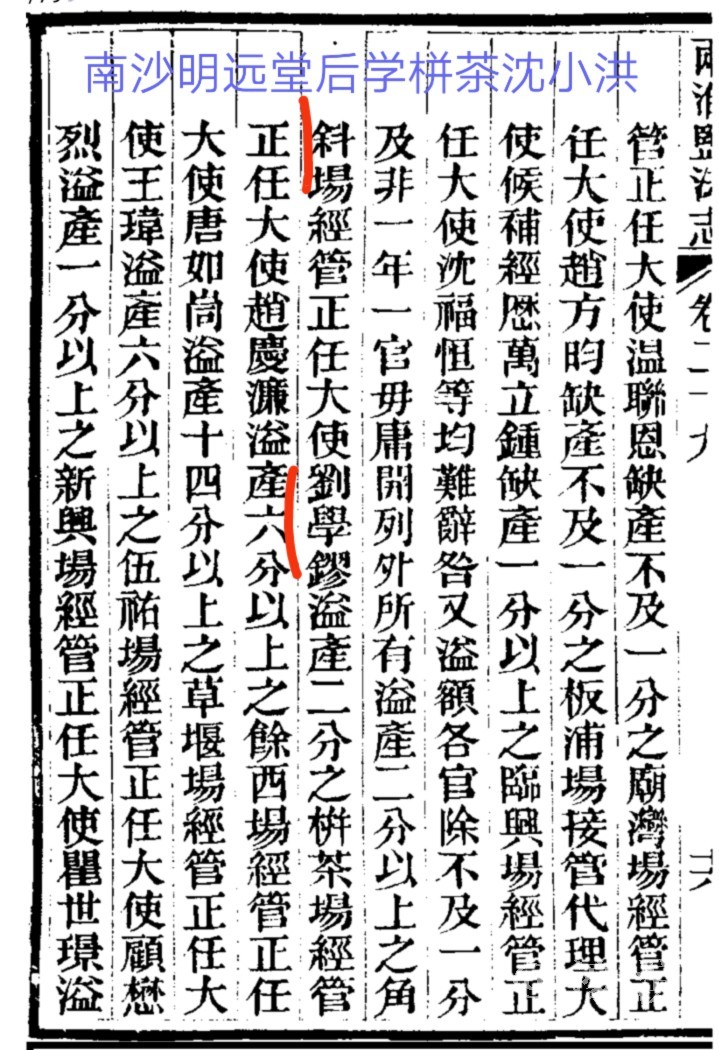 南沙明远堂后学栟茶沈小洪
兩淮鹽法志 卷二十九
管正任大使温聯恩缺產不及一分之廟灣場經管正
任大使趙方昀缺產不及一分之板浦場接管代理大
使候補經歷萬立鍾缺產一分以上之臨興場經管正
任大使沈福恒等均難辭咎又溢額各官除不及一分
及非一年一官毋庸開列外所有溢產二分以上之角
斜場經管正任大使劉學鏐溢產二分之栟茶場經管
正任大使趙慶濂溢產六分以上之餘西場經管正任
大使唐如峝溢產十四分以上之草堰場經管正任大
使王瑋溢產六分以上之伍祐場經管正任大使顧懋
烈溢產一分以上之新興場經管正任大使瞿世璟溢